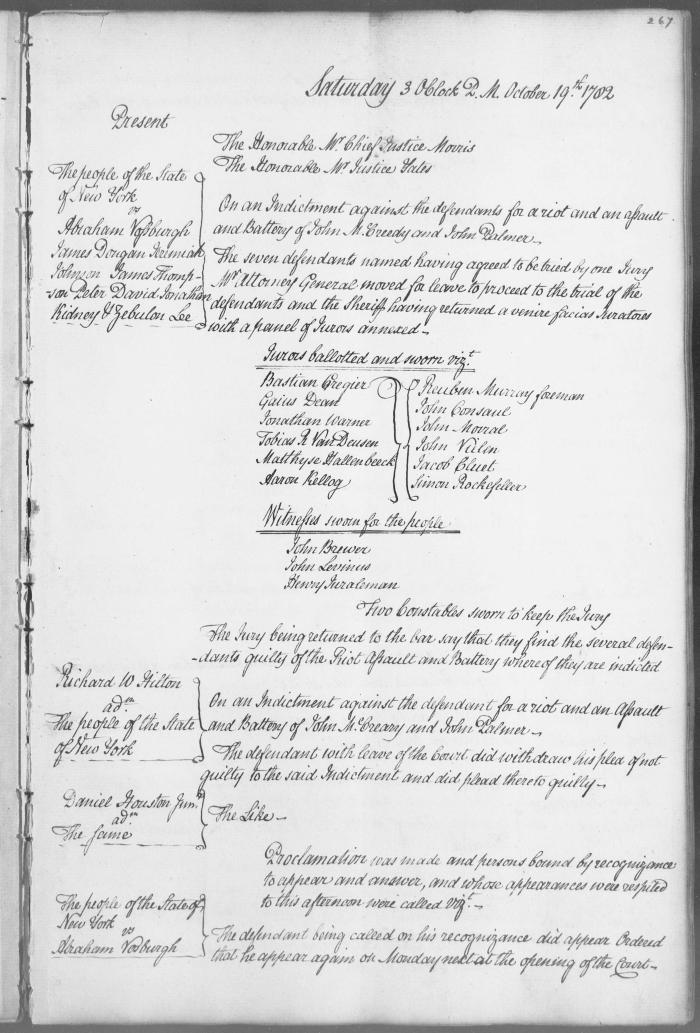 267
Saturday 3 OClock P. M. October 19.th 1782
Present
The Honorable Mr. Chief Justice Morris
The Honorable Mr. Justice Yates
The people of the State
of New York
vs
Abraham Vosburgh
James Dongan Jeremiah
Johnson James Thomp-
-son Peter David Jonathan
Kidney & Zebulon Lee
On an Indictment against the defendants for a riot and an assault
and Battery of John McCreedy and John Palmer
The seven defendants named having agreed to be tried by one Jury
Mr. Attorney General moved for leave to proceed to the trial of the
defendants and the Sheriff having returned a venire facias Juratores
with a panel of Jurors annexed
Jurors ballotted and sworn vizt.
Bastian Gregier
Gaius Dean
Jonathan Warner
Tobias R Van Deusen
Matthyse Hallenbeeck
Aaron Kellog
Reuben Murray foreman
John Consaul
John Morral
John
Jacob Cluet
Simon Rockefeller
Witnesses sworn for the people
John Brewer
John Levinus
Henry Juraleman
Two Constables sworn to keep the Jury
The Jury being returned to the bar say that they find the several defen-
-dants guilty of the Riot Assault and Battery whereof they are indicted
Richard W Hilton
ad.
The people of the State
of New York
On an Indictment against the defendant for a riot and an Assault
and Battery of John McCreary and John Palmer
The defendant with leave of the Court did withdraw his plea of not
guilty to the said Indictment and did plead thereto guilty
Daniel Houston Junr.
ad.
The same
The Like
Proclamation was made and persons bound by recognizance
to appear and answer, and whose appearances were respited
to this afternoon were called vizt.
The people of the State of
New York
vs
Abraham Vosburgh
The defendant being called on his recognizance did appear Ordered
that he appear again on Monday next at the opening of the Court